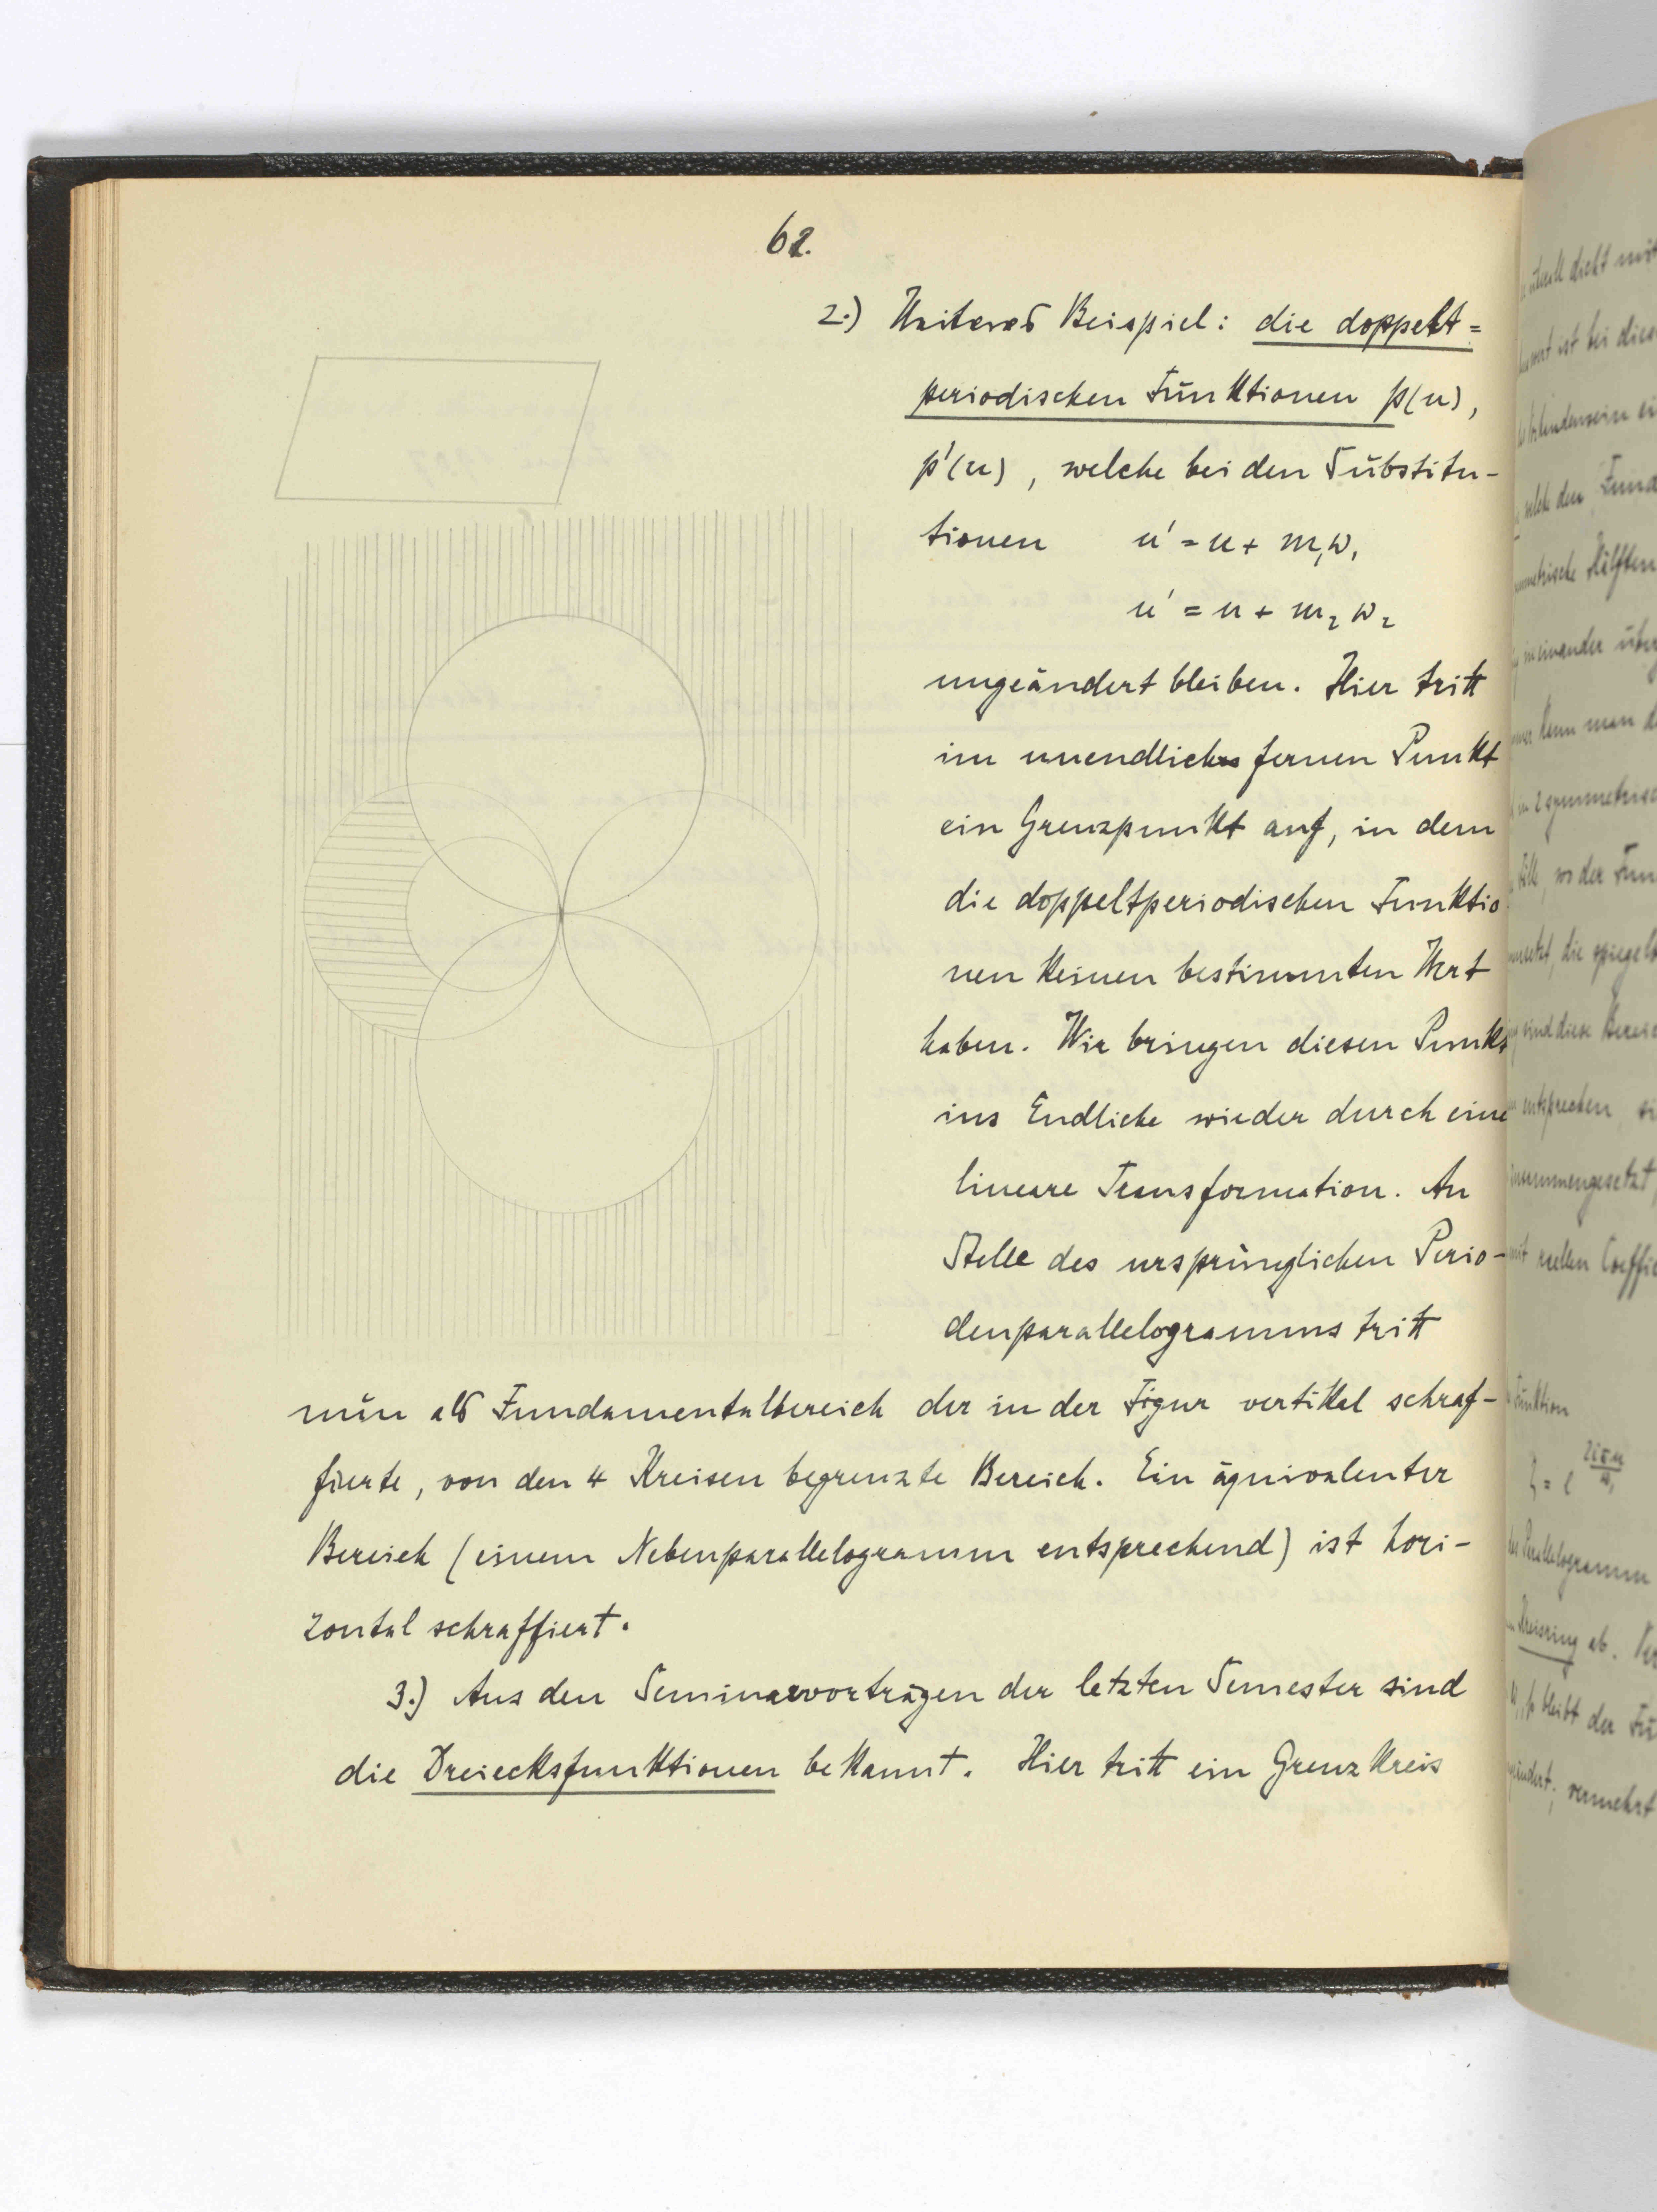 62.
2.) Weiteres Beispiel: die doppelt=
periodischen Funktionen p(u),
p'(u), welche bei den Substitu-
tionen u' = u + m₁ω₁
u' = u + m₂ω₂
ungeändert bleiben. Hier tritt
im unendlich fernen Punkt
ein Grenzpunkt auf, in dem
die doppeltperiodischen Funktio
nen keinen bestimmten Wert
haben. Wir bringen diesen Punkt
ins Endliche wieder durch eine
lineare Transformation. An
Stelle des ursprünglichen Perio-
denparallelogramms tritt
nun als Fundamentalbereich der in der Figur vertikal schraf-
fierte, von den 4 Kreisen begrenzte Bereich. Ein äquivalenter
Bereich (einem Nebenparallelogramm entsprechend) ist hori-
zontal schraffiert.
3.) Aus den Seminarvorträgen der letzten Semester sind
die Dreiecksfunktionen bekannt. Hier tritt ein Grenzkreis
dicht
ist bei
Hälften
in einander
kann man
in 2
wo der
die
sind diese
entsprechen
mmengesetzt
reellen Coeffic
Funktion
Parallelogramm
Kreisring ab.
bleibt der
vermehrt